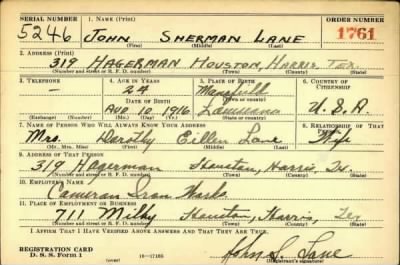 SERIAL NUMBER 1. NAME (Print) ORDER NUMBER
5246 JOHN SHERMAN LANE 1761
(First) (Middle) (Last)
2. ADDRESS (Print)
319 HAGERMAN HOUSTON, HARRIS TEX.
(Number and street or R. F. D. number) (Town) (County) (State)
3. TELEPHONE 4. AGE IN YEARS 5. PLACE OF BIRTH 6. COUNTRY OF CITIZENSHIP
— 24 Mansfield
(Town or county)
DATE OF BIRTH
AUG 10, 1916 Louisiana U.S.A.
(Exchange) (Number) (Mo.) (Day) (Yr.) (State or country)
7. NAME OF PERSON WHO WILL ALWAYS KNOW YOUR ADDRESS 8. RELATIONSHIP OF THAT PERSON
Mrs. Dorothy Eillen Lane Wife
(Mr., Mrs., Miss) (First) (Middle) (Last)
9. ADDRESS OF THAT PERSON
319 Hagerman Houston, Harris, Tx.
(Number and street or R. F. D. number) (Town) (County) (State)
10. EMPLOYER'S NAME
Cameron Iron Works
11. PLACE OF EMPLOYMENT OR BUSINESS
711 Milby Houston, Harris, Tex
(Number and street or R. F. D. number) (Town) (County) (State)
I AFFIRM THAT I HAVE VERIFIED ABOVE ANSWERS AND THAT THEY ARE TRUE.
REGISTRATION CARD
D. S. S. Form 1 (over) 16—17105 John S. Lane
(Registrant's signature)